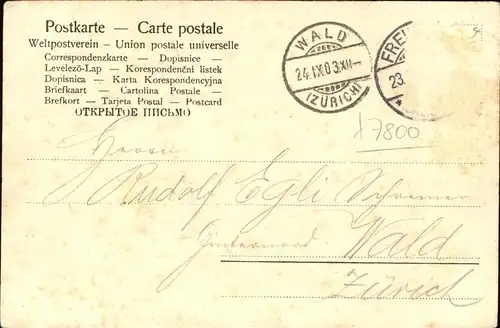 Postkarte — Carte postale
Weltpostverein — Union postale universelle
Correspondenzkarte — Dopisnice —
Levelező-Lap — Korespondenční listek
Dopisnica — Karta Korespondencyjna
Briefkaart — Cartolina Postale —
Brefkort — Tarjeta Postal — Postcard
ОТКРЫТОЕ ПИСЬМО
WALD
24.IX.03.XII—
(ZÜRICH)
FREI
23.
7800
Herrn
Rudolf Egli Schreiner
Wald
Zürich